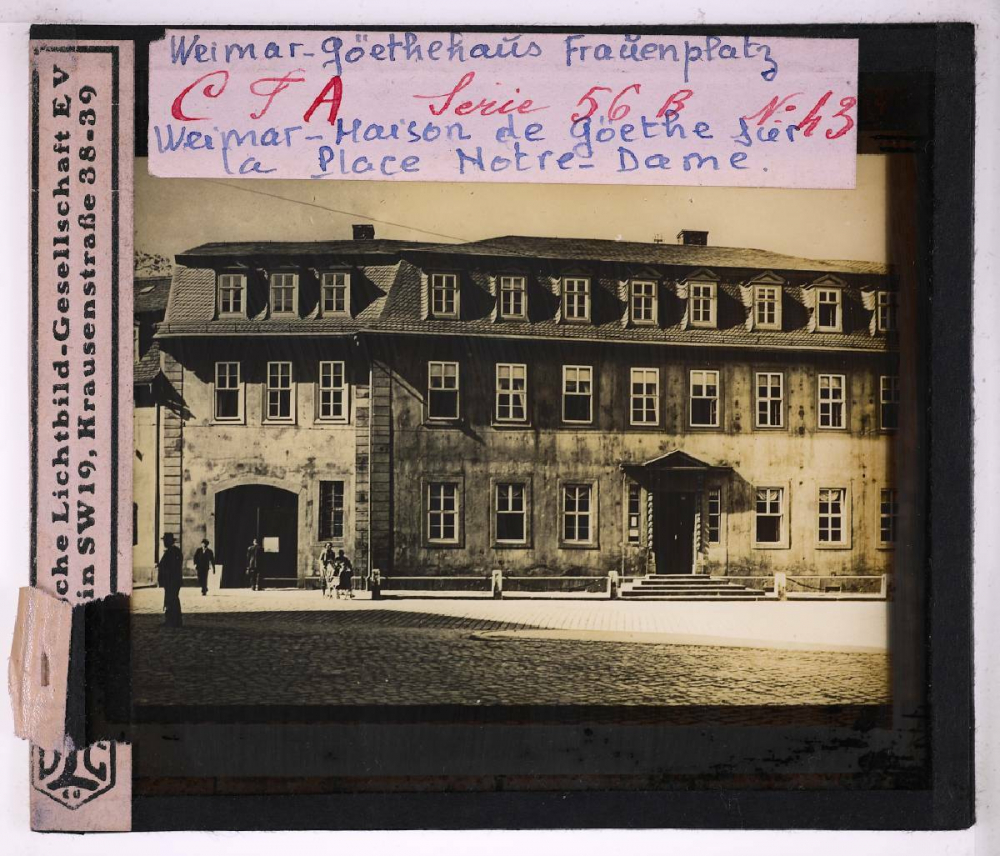 Weimar-Göethehaŭs Fraŭenplatz
C F A Serie 56 B N: 43
Weimar-Maison de Göethe sŭr
la Place Notre-Dame.
che Lichtbild-Gesellschaft E V
in SW19, Krausenstraße 38-39